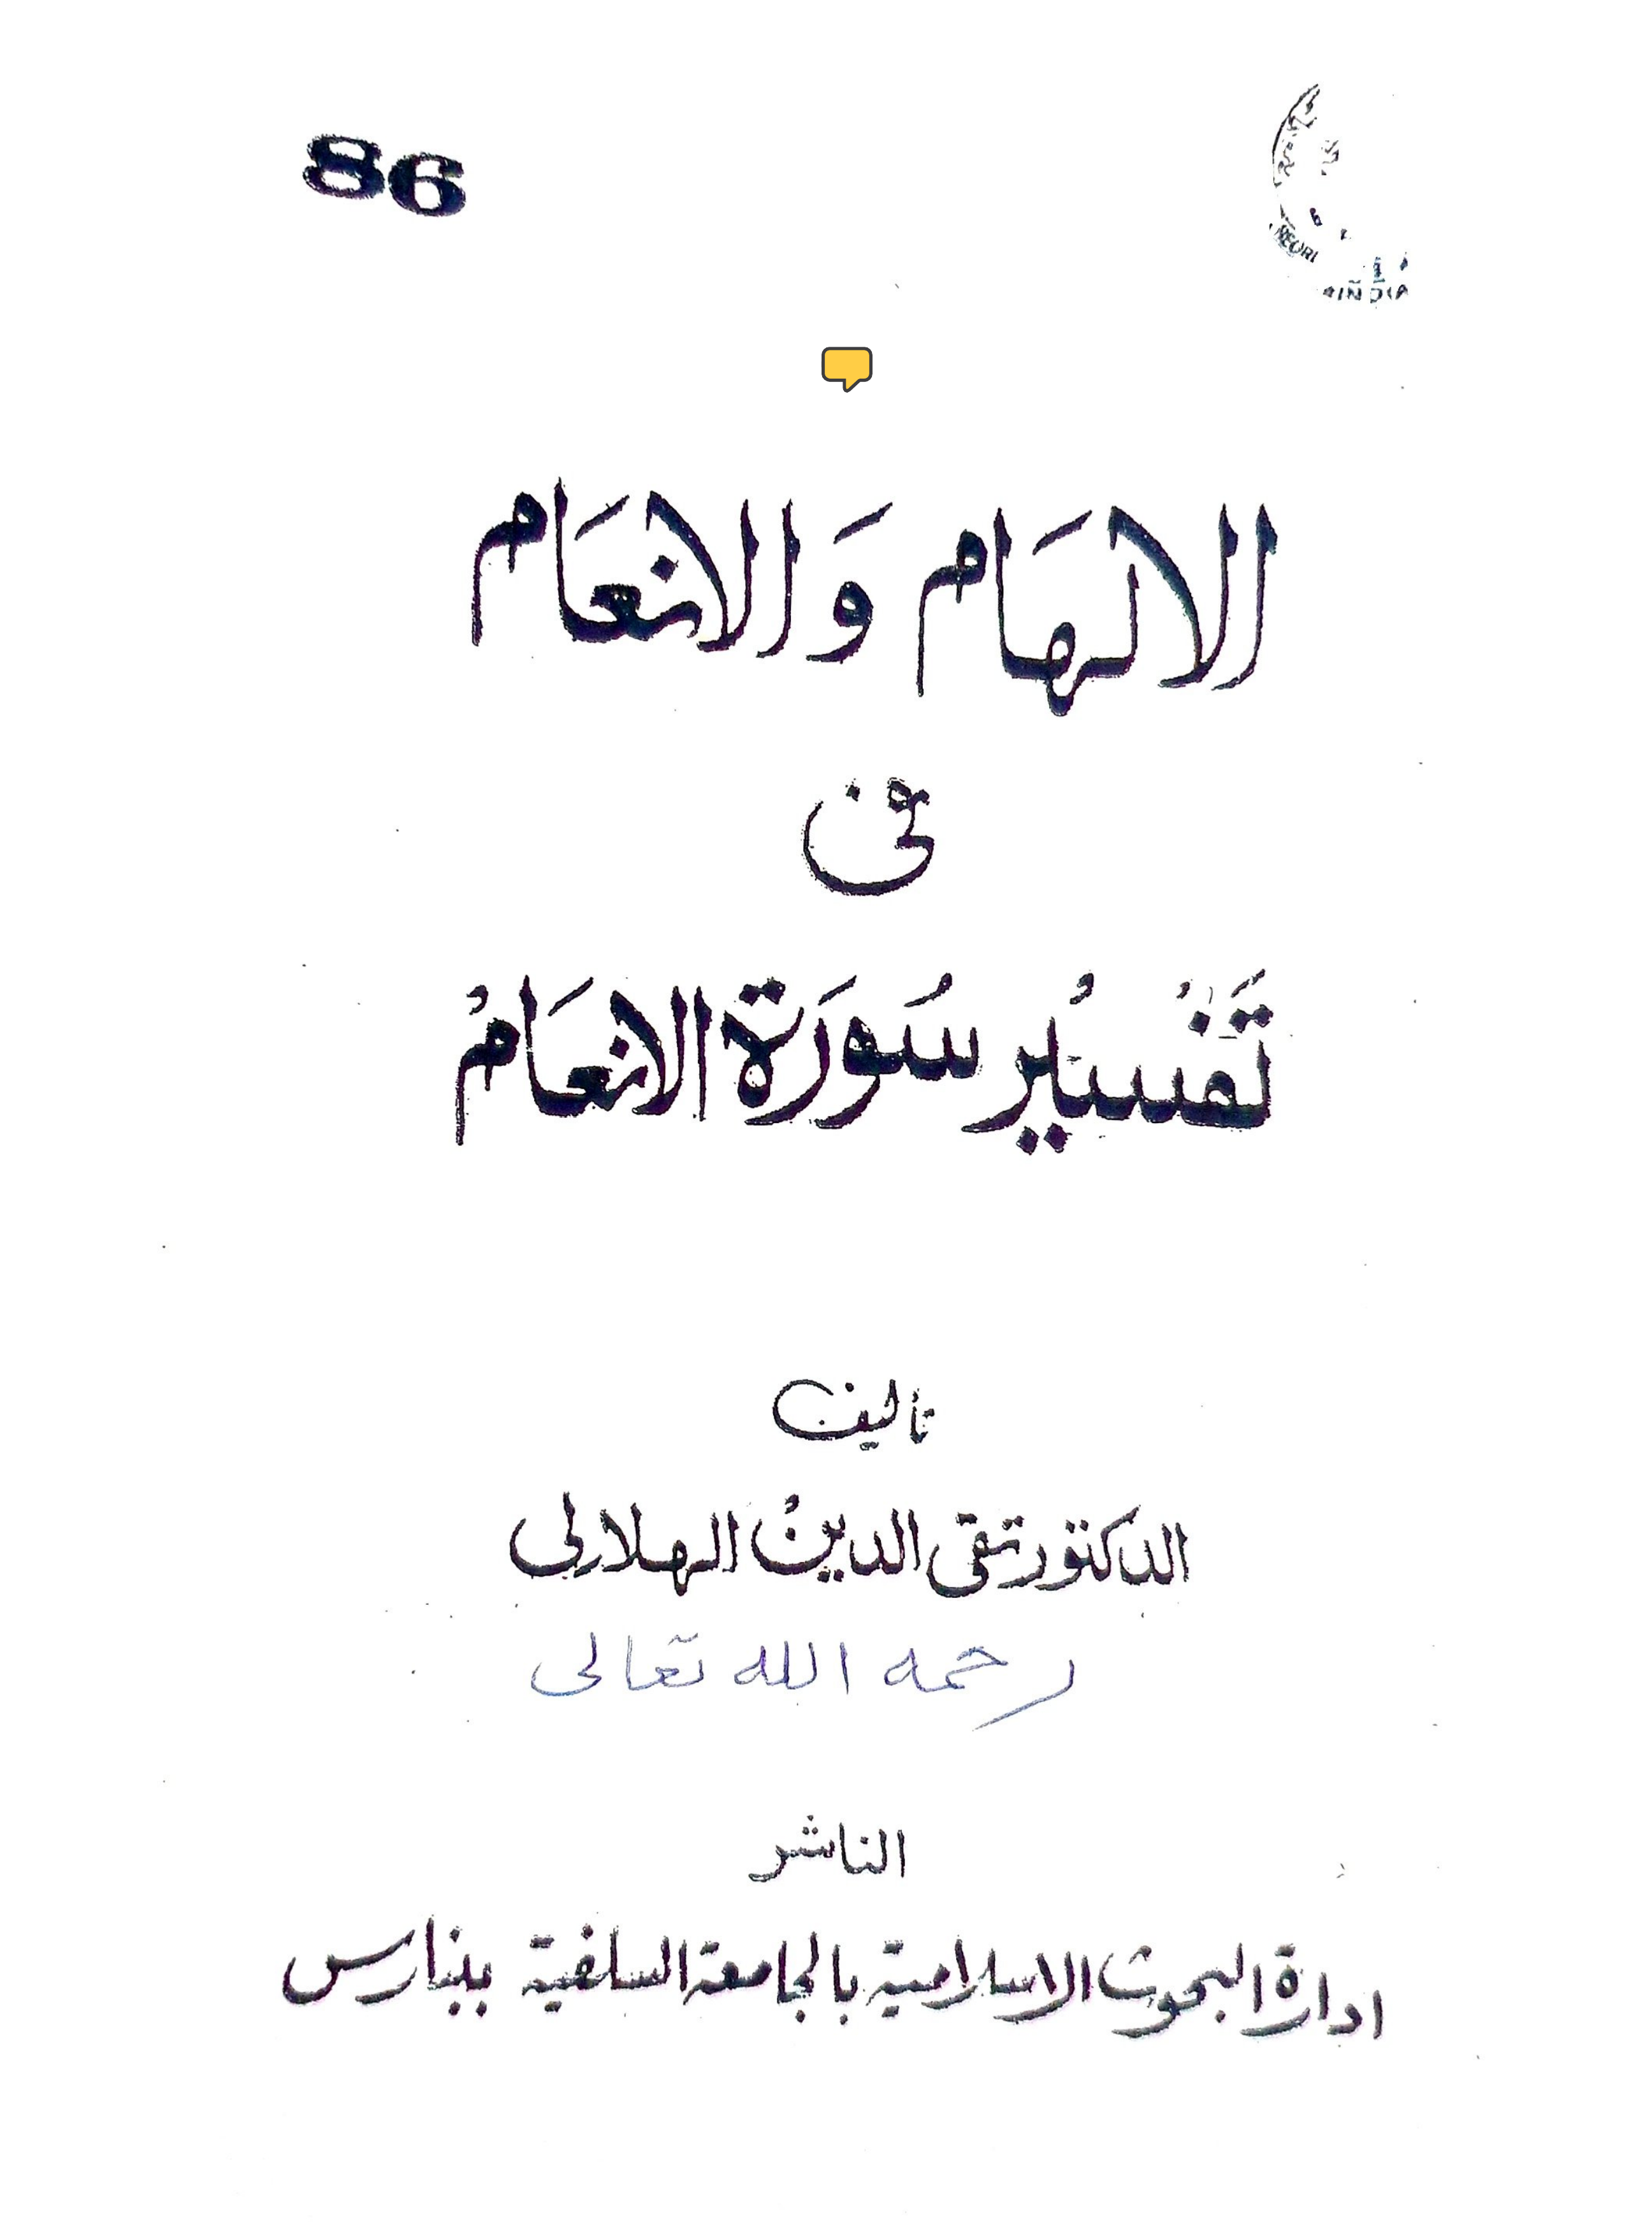 86
الالهَام وَالانعَام
فى
تَفْسيُر سُورَة الانعَامُ
تأليف
الدكتور تقى الدينُ الهلالى
رحمه الله تعالى
الناشر
ادارة البحوث الاسلامية بالجامعة السلفية ببنارس